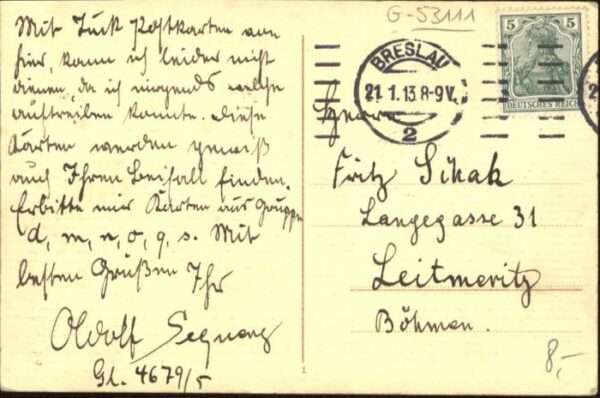 Mit Tuck Postkarten von
hier, kann ich leider nicht
dienen, da ich nirgends welche
auftreiben konnte. Diese
Karten werden gewiß
auch Ihren Beifall finden.
Erbitte mir Karten aus Gruppe
d, m, n, o, q, s. Mit
besten Grüßen Ihr
Adolf
Gl. 4679/5
G-53111
BRESLAU
21.1.13.8-9V.
2
5 5
DEUTSCHES REICH
Herrn
Fritz Schak
Langegasse 31
Leitmeritz
Böhmen.
8,-